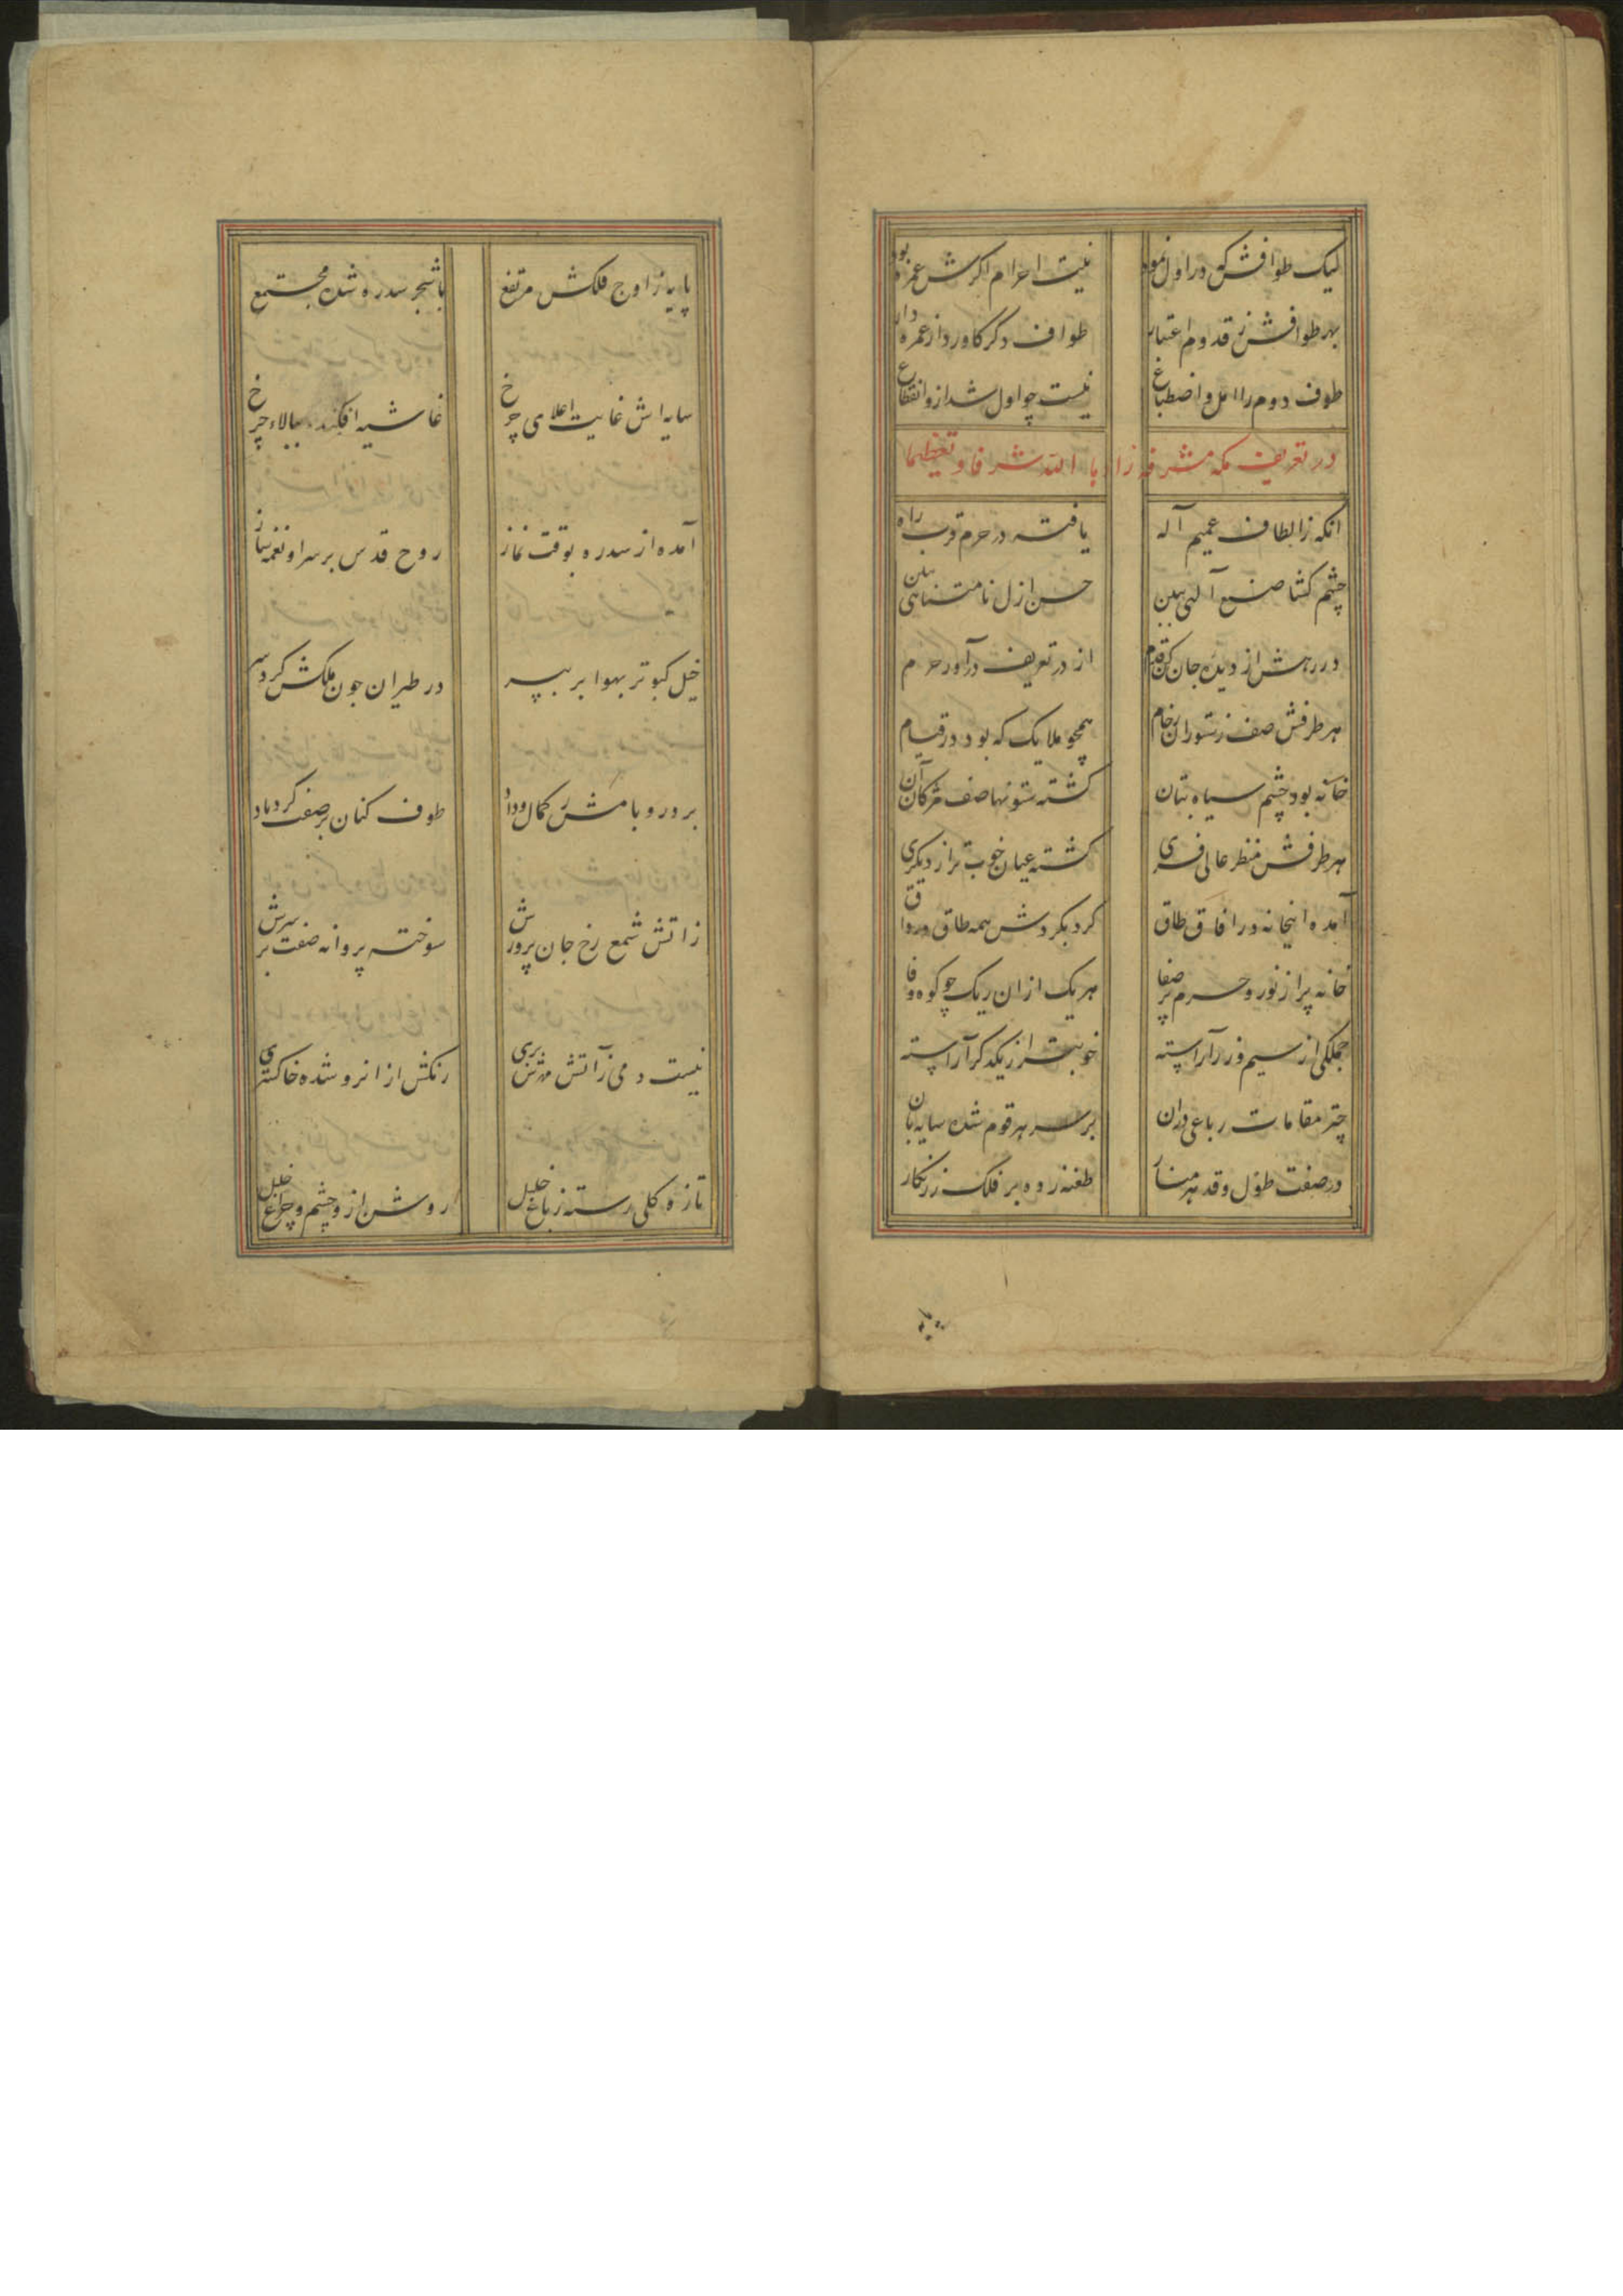 لیک طوافش که در اول نمود نیت احرام اکرش عمره بود
بهر طوافش ز قدوم اعتبار طواف دکر کاورد از عمره دار
طوف دوم را رمل و اضطباع نیست چو اول شد ازو انقطاع
در تعریف مکه مشرفه زاد ها الله شرفا و تعظیما
انکه ز الطاف عمیم آله یافته در حرم قرب راه
چشم کشا صنع آلهی ببین حسن ازل نامتناهی ببین
در رهش از دیده جان کن قدم از در تعریف درآ در حرم
هر طرفش صف ز ستوران رخام همچو ملایک که بود در قیام
خانه بود چشم سیاه بتان کشته ستونها صف مژکان آن
هر طرفش منظر عالی فری کشته عیان خوب تر از دیکری
آمده اینخانه در افاق طاق کرد بکردش همه طاق و رواق
خانه پر از نور و حرم پر صفا هر یک ازان ریک چو کوه وفا
جملکی از سیم و زر آراسته خوبتر از یکدکر آراسته
چتر مقامات رباعی دران بر سر هر قوم شده سایه بان
در صفت طول و قد هر منار طعنه زده بر فلک زرنکار
پایه ز اوج فلکش مرتفع با شجر سدره شده مجتمع
سایه اش غایت اعلای چرخ غاشیه افکنده ببالاء چرخ
آمده از سدره بوقت نماز روح قدس بر سر او نغمه ساز
خیل کبوتر بهوا بر بپر در طیران چون ملکش کرد سر
بر در و بامش ز کمال وداد طوف کنان بر صفت کردباد
ز اتش شمع رخ جان پرورش سوخته پروانه صفت بر سرش
نیست دمی ز آتش مهرش بری رنکش از انرو شده خاکستری
تازه کلی رسته ز باغ خلیل روشن ازو چشم و چراغ خلیل
پایه